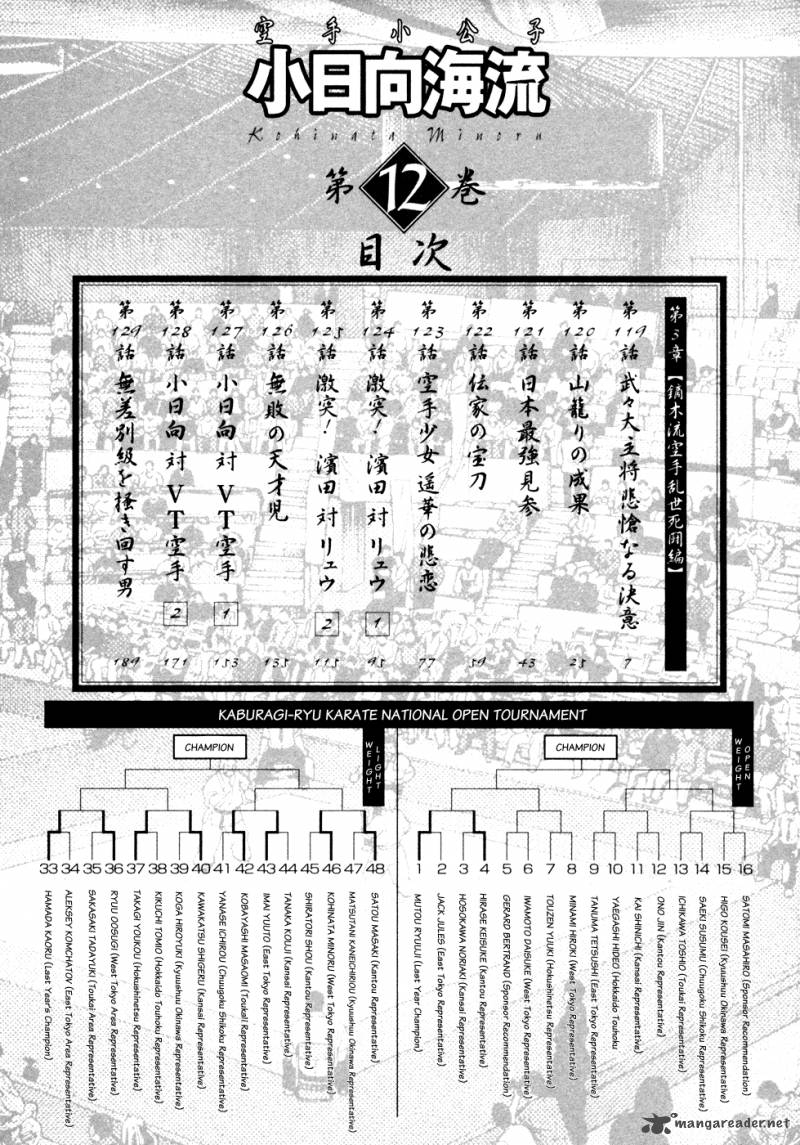 空手小公子
小日向海流
Kohinata Minoru
第12巻
目次
第5章【鏑木流空手乱世死闘編】
第119話 武々大主将悲愴なる決意 7
第120話 山籠りの成果 25
第121話 日本最強見参 43
第122話 伝家の宝刀 59
第123話 空手少女 遥華の悲恋 77
第124話 激突! 濱田 対 リュウ 1 95
第125話 激突! 濱田 対 リュウ 2 115
第126話 無敗の天才児 135
第127話 小日向 対 VT空手 1 153
第128話 小日向 対 VT空手 2 171
第129話 無差別級を掻き回す男 189
KABURAGI-RYU KARATE NATIONAL OPEN TOURNAMENT
CHAMPION
LIGHT WEIGHT
33 HAMADA KAORU (Last Year's Champion)
34 ALEKSEY KOMCHATOV (East Tokyo Area Representative)
35 SAKASAKI TADAYUKI (Toukai Area Representative)
36 RYUU OOSUGI (West Tokyo Area Representative)
37 TAKAGI YOUKOU (Hokushinetsu Representative)
38 KIKUCHI TOMIO (Hokkaido Touhoku Representative)
39 KOGA HIROYUKI (Kyuushuu Okinawa Representative)
40 KAWAKATSU SHIGERU (Kansai Representative)
41 YANASE ICHIROU (Chuugoku Shikoku Representative)
42 KOBAYASHI MASAOMI (Toukai Representative)
43 IMAI YUUTO (East Tokyo Representative)
44 TANAKA KOUJI (Kansai Representative)
45 SHIRATORI SHOU (Kantou Representative)
46 KOHINATA MINORU (West Tokyo Representative)
47 MATSUTANI KANEICHIROU (Kyuushuu Okinawa Representative)
48 SATOU MASAKI (Kantou Representative)
CHAMPION
OPEN WEIGHT
1 MUTOU RYUUJI (Last Year Champion)
2 JACK JULES (East Tokyo Representative)
3 HOSOKAWA NORIAKI (Kansai Representative)
4 HIRASE KEISUKE (Kantou Representative)
5 GERARD BERTRAND (Sponsor Recommendation)
6 IWAMOTO DAISUKE (West Tokyo Representative)
7 TOUZEN YUUKI (Hokushinetsu Representative)
8 MINAMI HIROKI (West Tokyo Representative)
9 TANUMA TETSUSHI (East Tokyo Representative)
10 YAEGASHI HIDEO (Hokkaido Touhoku
11 KAI SHINICHI (Kansai Representative)
12 ONO JIN (Kantou Representative)
13 ICHIKAWA TOSHIO (Toukai Representative)
14 SAEKI SUSUMU (Chuugoku Shikoku Representative)
15 HIGO KOUSEI (Kyuushuu Okinawa Representative)
16 SATOMI MASAHIRO (Sponsor Recommendation)
mangareader.net